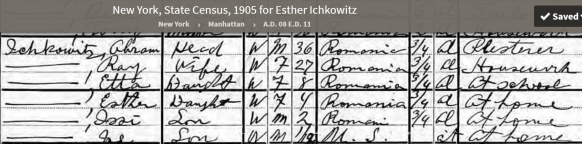 New York, State Census, 1905 for Esther Ichkowitz
New York › Manhattan › A.D. 08 E.D. 11
✓ Saved
Ichkowitz, Abram Head W M 36 Romania 3/4 al Plesterer
—— , Ray Wife W F 27 Romania 3/4 al Housework
—— , Etta Daught W F 8 Romania 3/4 al At school
—— , Esther Daught W F 4 Romania 3/4 al At home
—— , Issi Son W M 2 Romani 3/4 al At home
—— , Son W M U.S. cit At home